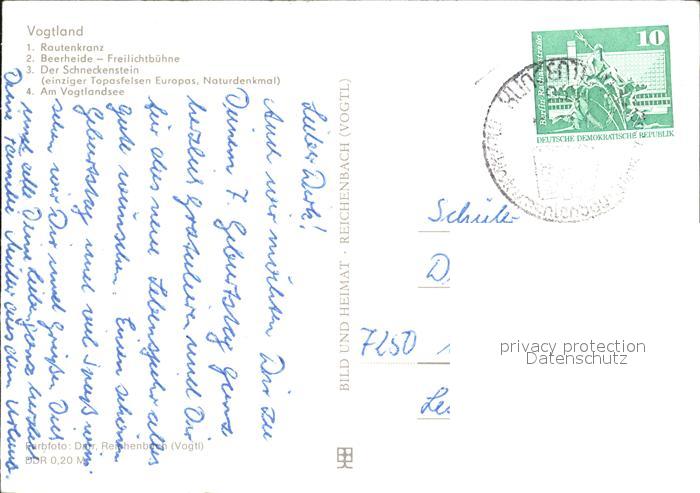 Vogtland
1. Rautenkranz
2. Beerheide – Freilichtbühne
3. Der Schneckenstein
(einziger Topasfelsen Europas, Naturdenkmal)
4. Am Vogtlandsee
Auch wir möchten Dir zu
Deinem 7. Geburtstag ganz
herzlich gratulieren und Dir
für das neue Lebensjahr alles
gute wünschen. Einen schönen
Geburtstag und viel Spaß
wir Dir und grüßen Dich
und alle Deine Lieben ganz herzlich
Deine Familie Müller aus dem Urlaub.
Farbfoto: Darr, Reichenbach (Vogtl)
DDR 0,20 M
BILD UND HEIMAT · REICHENBACH (VOGTL)
10
Berlin Rathausstraße
DEUTSCHE DEMOKRATISCHE REPUBLIK
Schüler
D
7250
privacy protection
Datenschutz